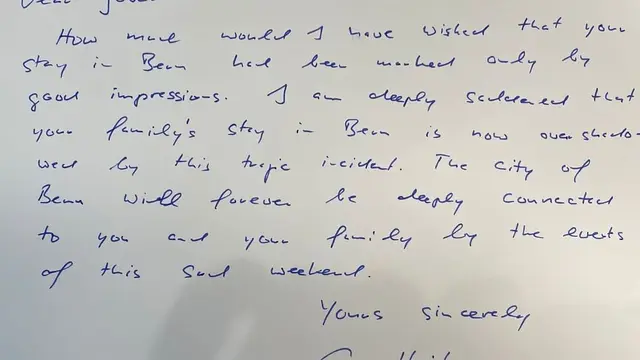 How much would I have wished that your
stay in Bern had been marked only by
good impressions. I am deeply saddened that
your family's stay in Bern is now overshado-
wed by this tragic incident. The city of
Bern will forever be deeply connected
to you and your family by the events
of this sad weekend.
Yours sincerely